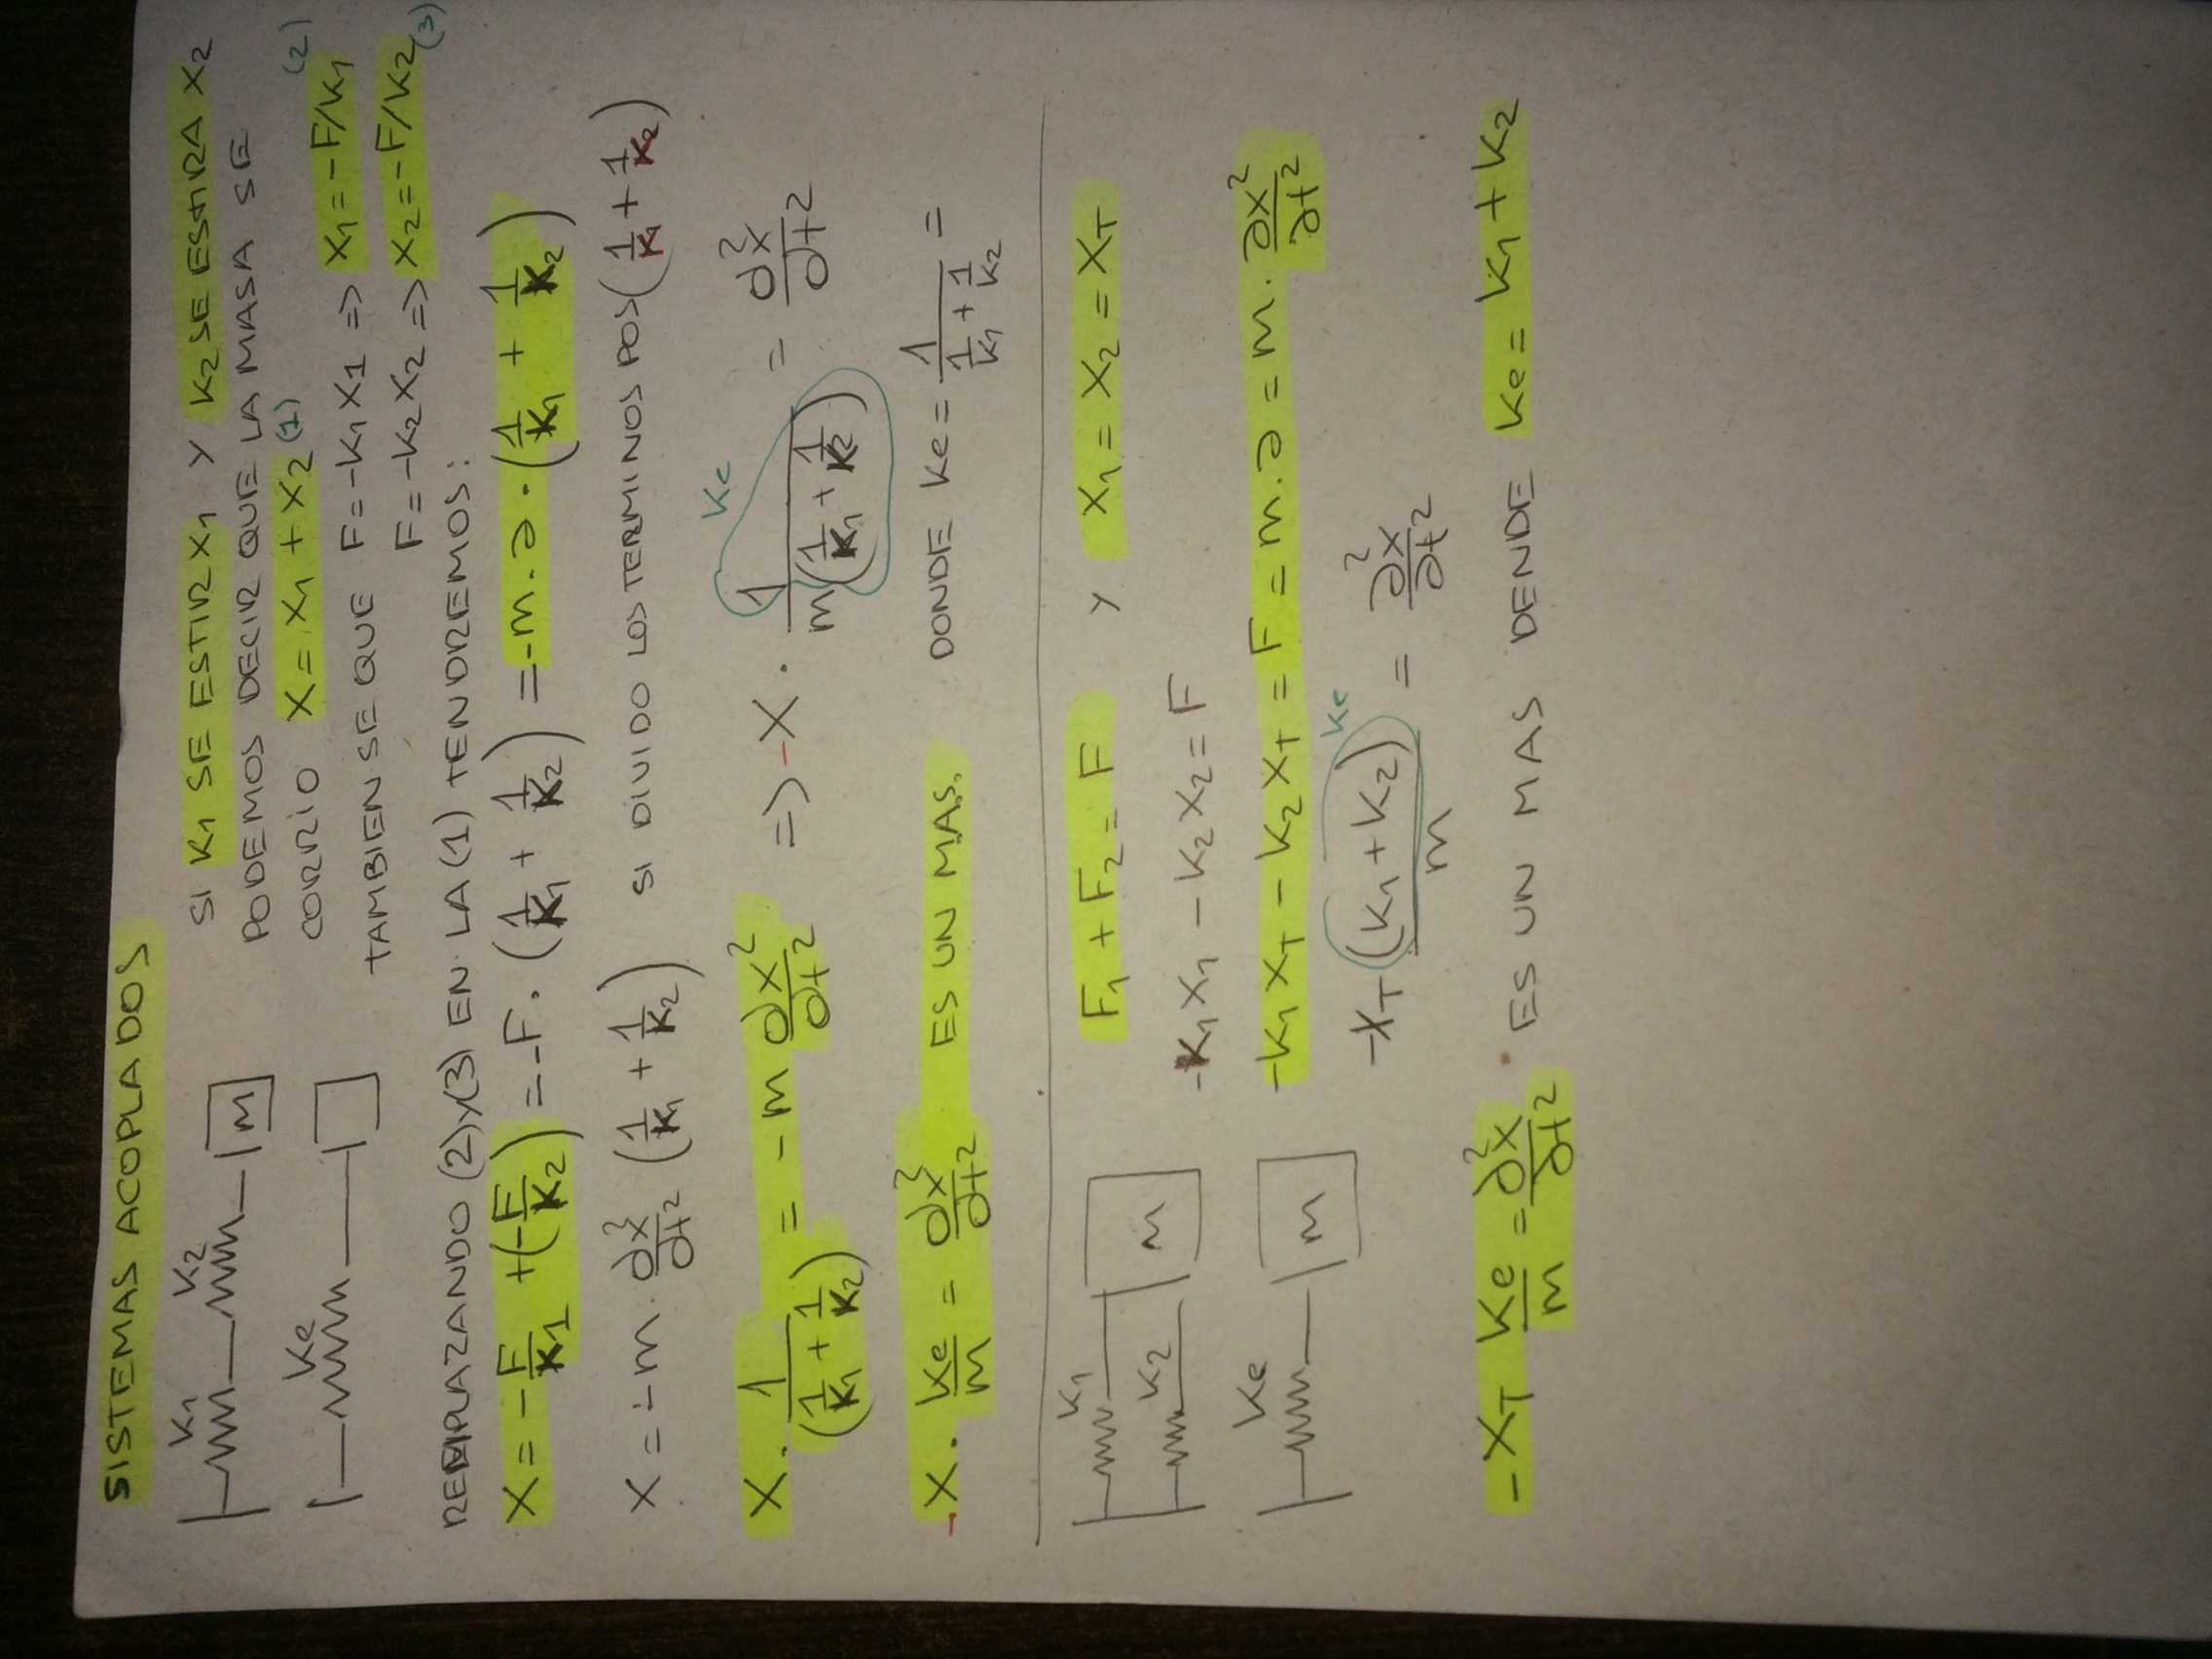 SISTEMAS ACOPLADOS
K1 K2 m
SI K1 SE ESTIR X1 Y K2 SE ESTIRA X2
PODEMOS DECIR QUE LA MASA SE
CORRIO X = X1 + X2 (1)
Ke
TAMBIEN SE QUE F = -K1 X1 => X1 = -F/K1 (2)
F = -K2 X2 => X2 = -F/K2 (3)
REEMPLAZANDO (2) Y (3) EN LA (1) TENDREMOS:
X = -F/K1 + (-F/K2) = -F . (1/K1 + 1/K2) = -m . a . (1/K1 + 1/K2)
X = -m . ∂²x/∂t² (1/K1 + 1/K2) SI DIVIDO LOS TERMINOS POS (1/K1 + 1/K2)
X . 1/(1/K1 + 1/K2) = -m ∂x²/∂t² => -X . 1/m(1/K1 + 1/K2) = ∂²x/∂t²
Ke
-X . Ke/m = ∂x²/∂t² ES UN MAS. DONDE Ke = 1/(1/K1 + 1/K2) =
K1 K2 m
F1 + F2 = F Y X1 = X2 = XT
-K1 X1 - K2 X2 = F
Ke m
-K1 XT - K2 XT = F = m . a = m . ∂x²/∂t²
-XT (K1 + K2)/m = ∂²x/∂t²
Ke
-XT Ke/m = ∂²x/∂t² ES UN MAS DENDE Ke = K1 + K2